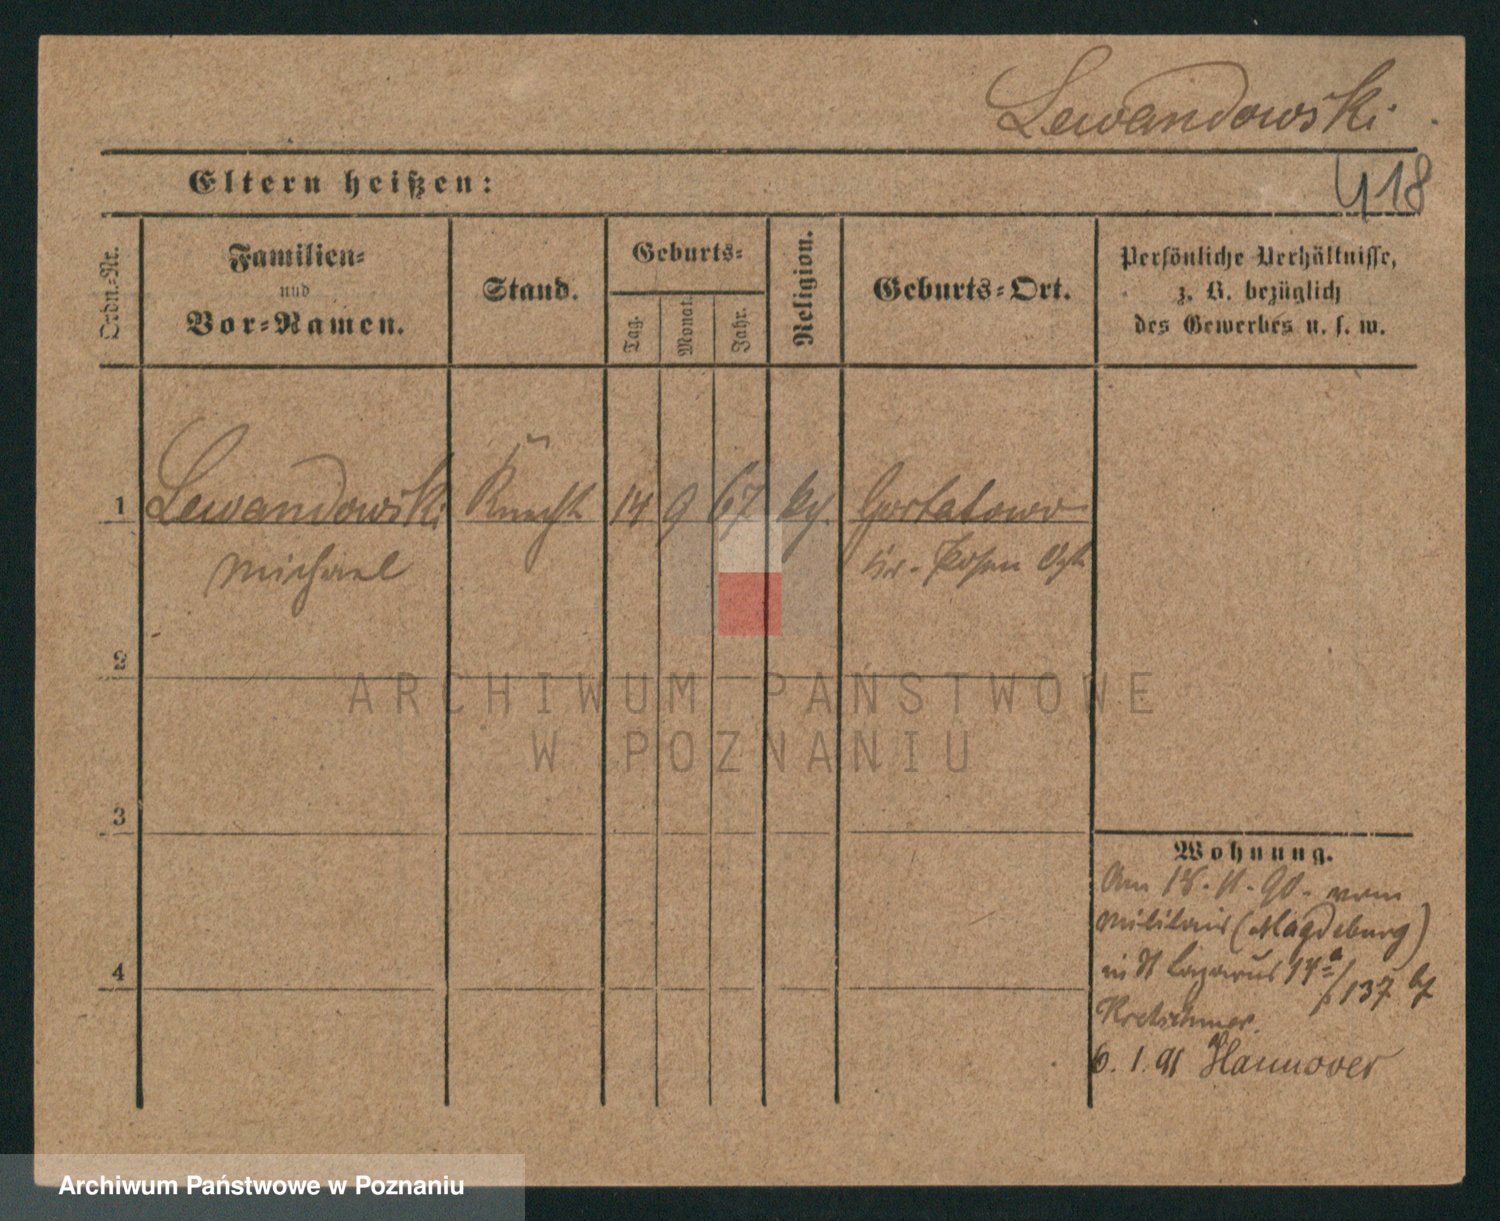 Lewandowski.
418
Eltern heißen:
Ordn.-Nr.
Familien-
und
Vor-Namen.
Stand.
Geburts-
Tag.
Monat.
Jahr.
Religion.
Geburts-Ort.
Persönliche Verhältnisse,
z. B. bezüglich
des Gewerbes u. s. w.
1 Lewandowski Knecht 14 9 67 kg. Gortatowo
Michael Kr. Posen Ost
2
ARCHIWUM PAŃSTWOWE
W POZNANIU
3
4
Wohnung.
Am 18. 11. 90. vom
Militair (Magdeburg)
in St Lazarus 14a/137 bf
Kretschmer.
6. 1. 91 Hannover
Archiwum Państwowe w Poznaniu